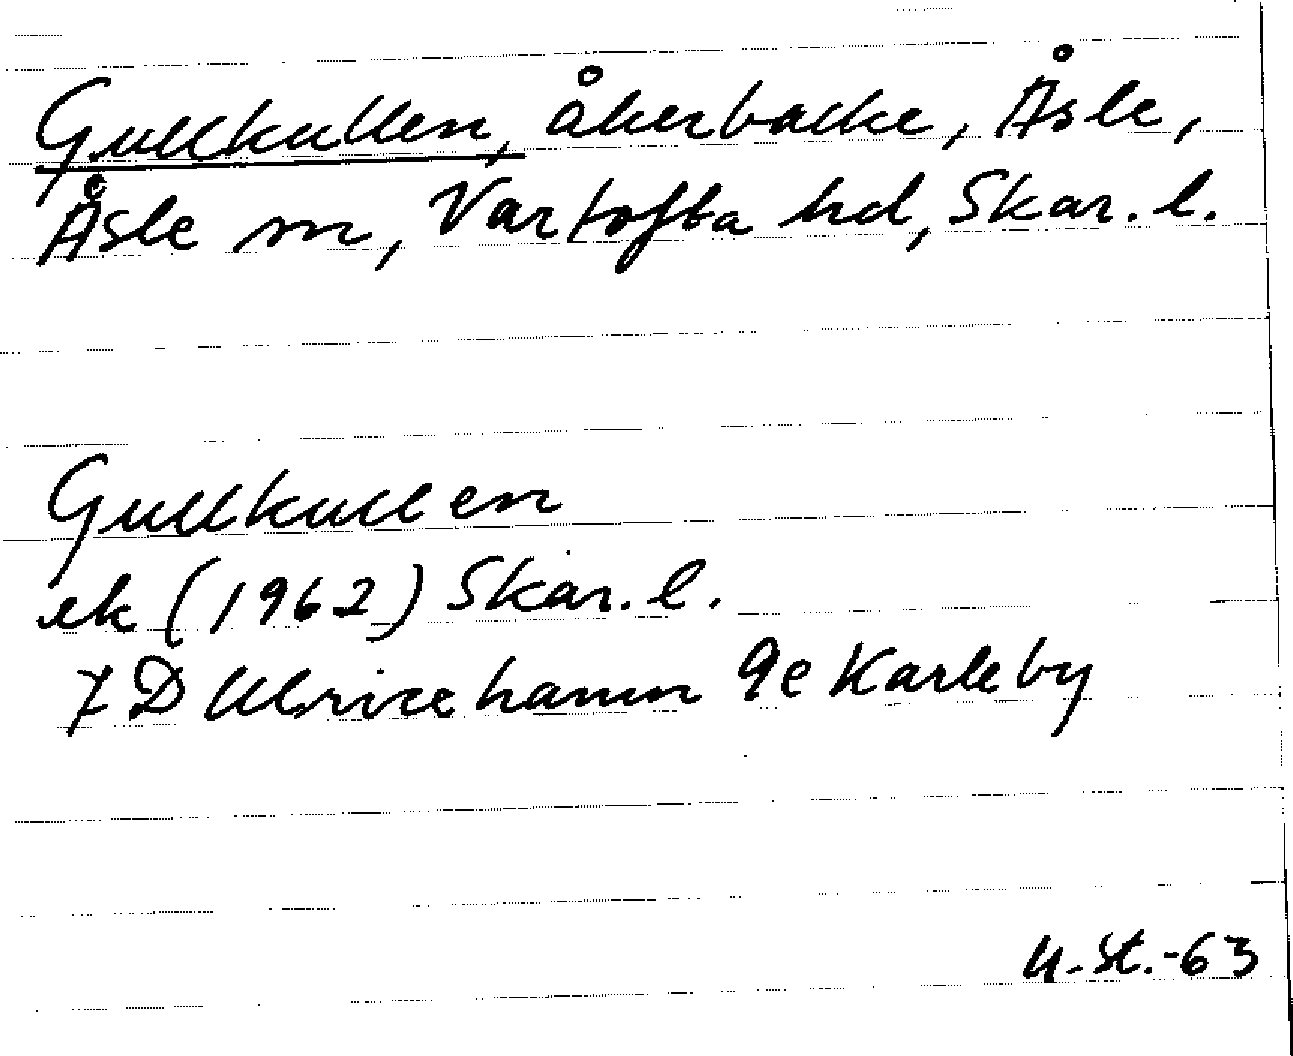 Gullkullen, åkerbacke, Åsle,
Åsle sn, Vartofta hd, Skar. l.
Gullkullen
ek (1962) Skar. l.
7D Ulricehamn 9e Karleby
U. St. -63